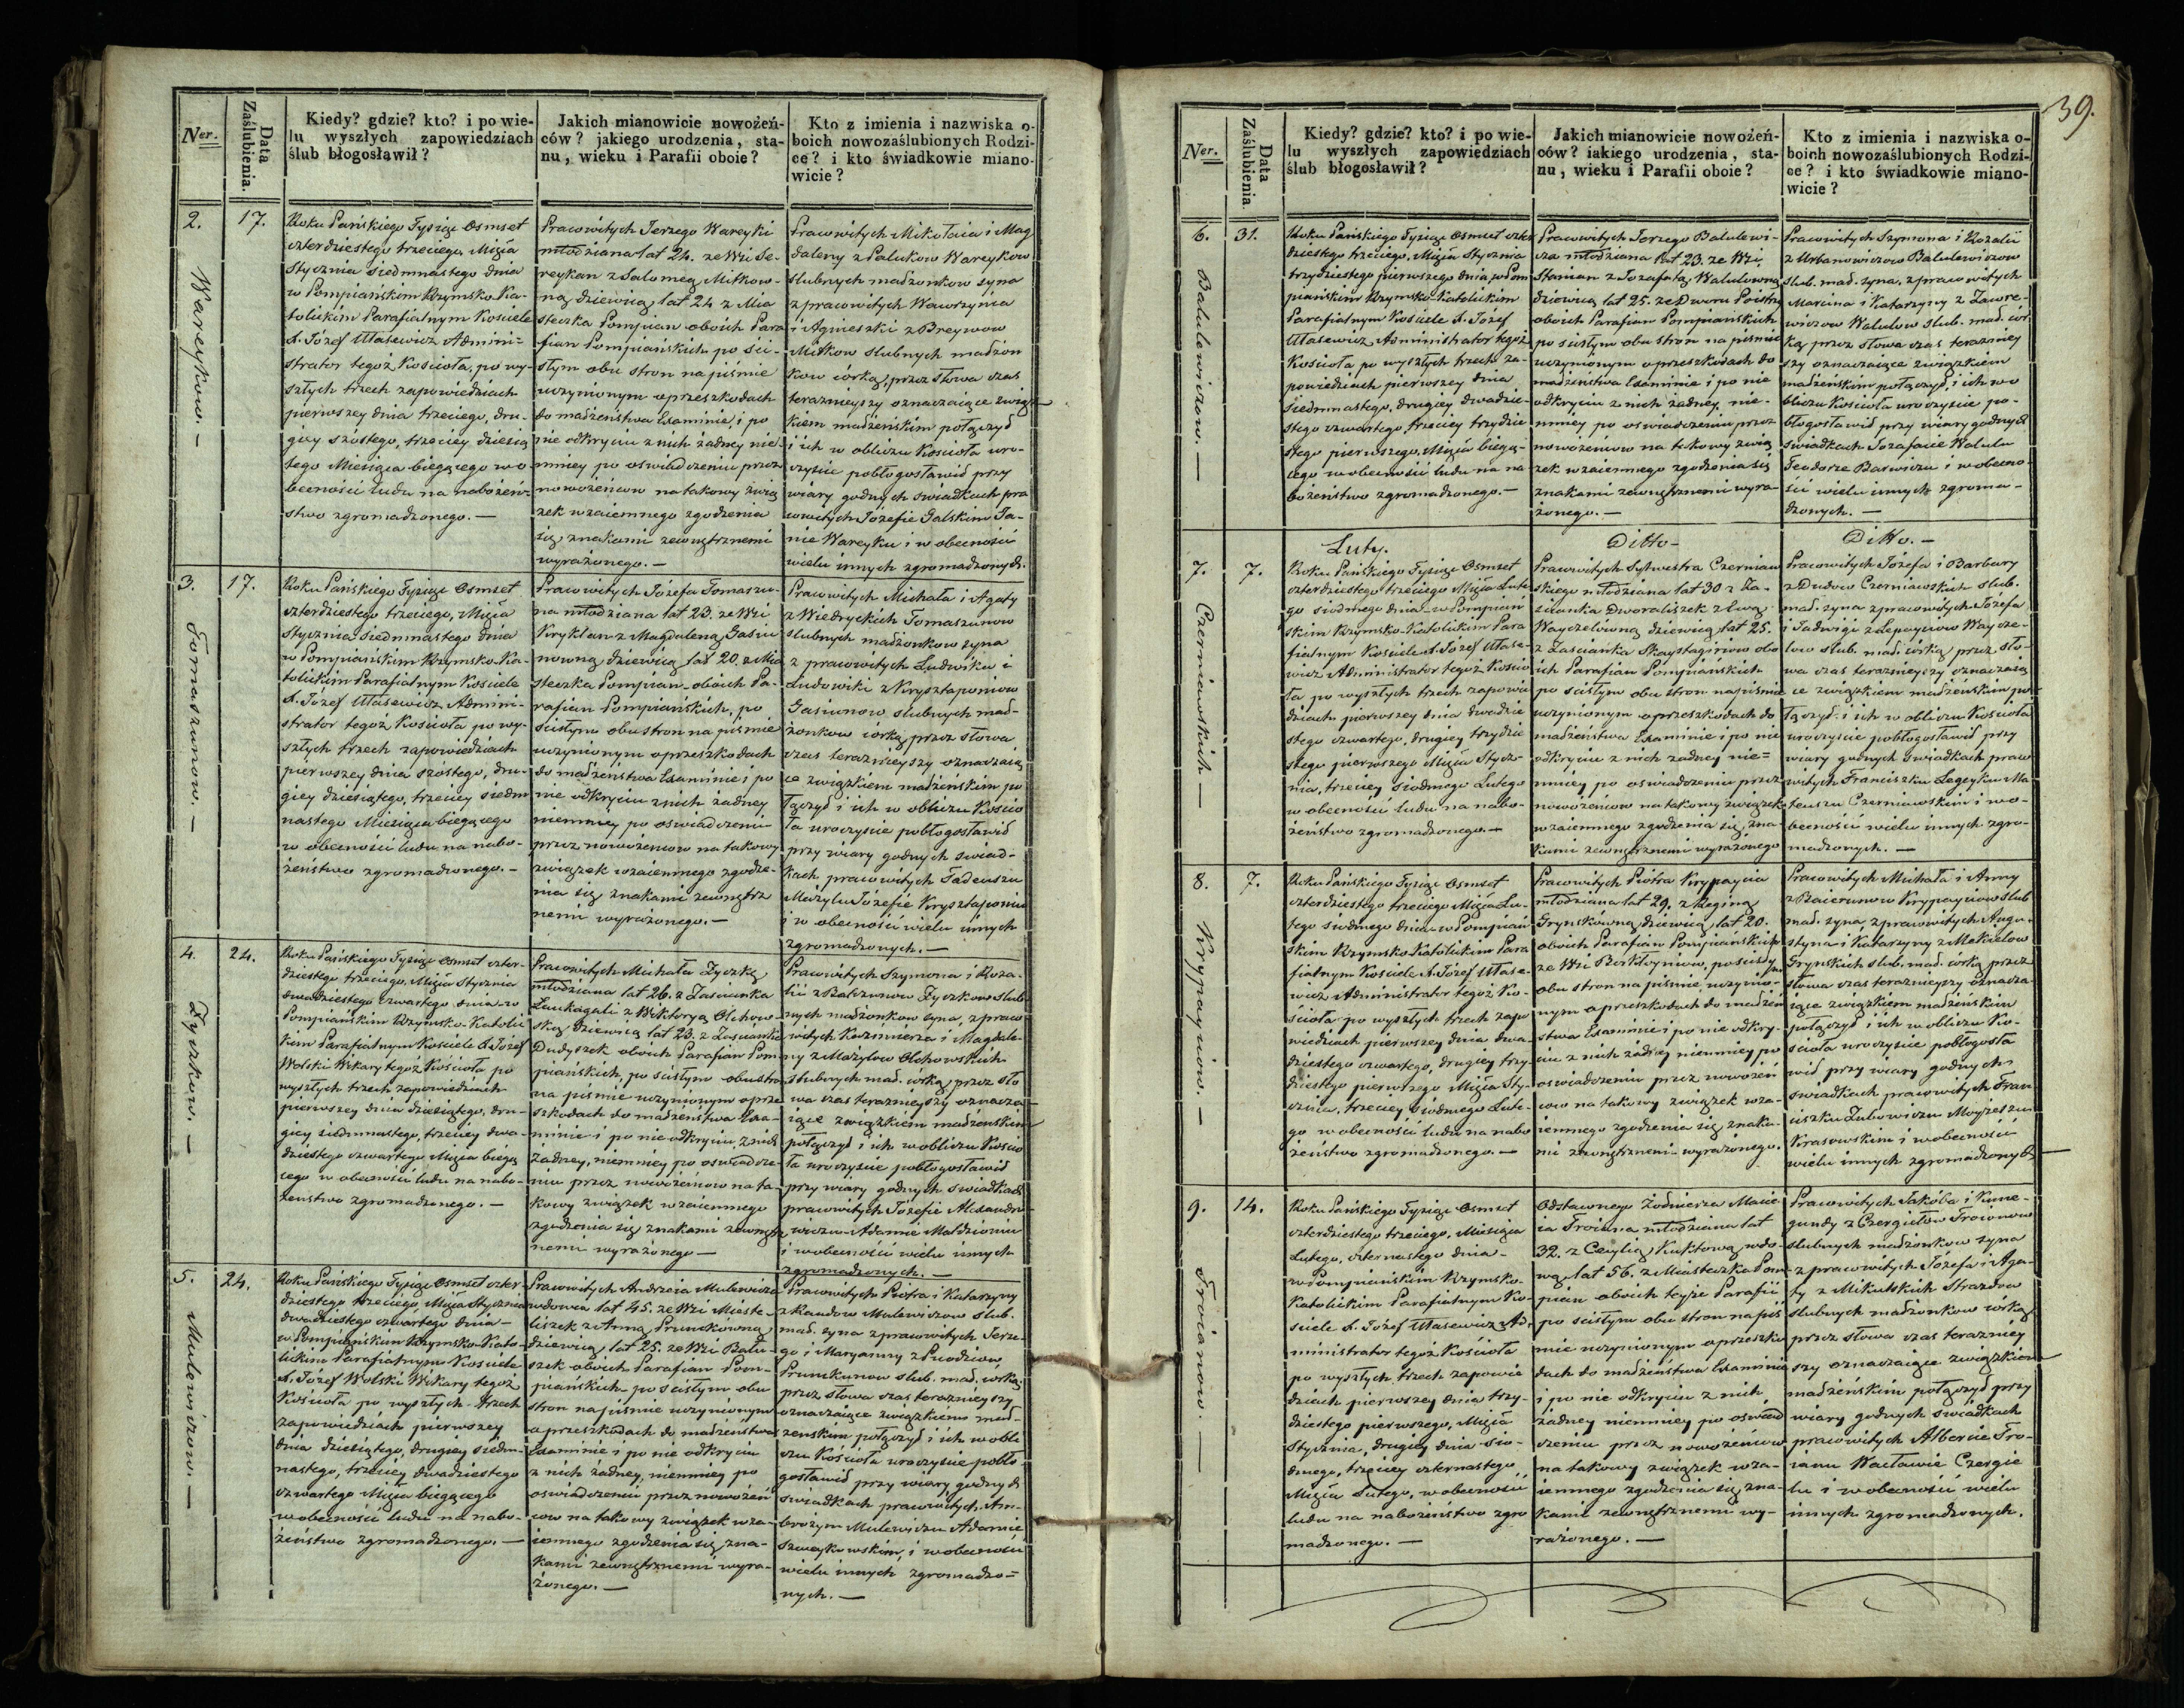 Ner.
Data
Zaślubienia.
Kiedy? gdzie? kto? i po wie-
lu wyszłych zapowiedziach
ślub błogosławił?
Jakich mianowicie nowożeń-
ców? jakiego urodzenia, sta-
nu, wieku i Parafii oboie?
Kto z imienia i nazwiska o-
boich nowozaślubionych Rodzi-
ce? i kto świadkowie miano-
wicie?
2.
Wareykow. —
17.
Roku Pańskiego Tysiąc Osmset
czterdziestego trzeciego, Mięsia
Stycznia siedmnastego dnia
w Pompiańskim Rzymsko-Ka-
tolickim Parafialnym Kościele
X. Józef Ułasewicz Admini-
strator tegoż Kościoła, po wy-
szłych trzech zapowiedziach
pierwszey dnia trzeciego, dru-
giey szóstego, trzeciey dziesią
tego Miesiąca biegącego w o
becności ludu na nabożeń-
stwo zgromadzonego. —
Pracowitych Jerzego Wareyki
młodziana lat 24. ze Wsi Se-
reykan z Salomeą Mitkow-
ną dziewicą lat 24 z Mia
steczka Pompian oboich Para
fian Pompiańskich po ści-
słym obu stron na piśmie
uczynionym o przeszkodach
do małżeństwa Examinie, i po
nie odkryciu z nich żadney nie-
mniey po oświadczeniu przez
nowożeńcow na takowy zwią
zek wzaiemnego zgodzenia
się znakami zewnętrznemi
wyrażonego. —
Pracowitych Mikołaia i Mag
daleny z Palukow Wareykow
slubnych małżonkow syna
z pracowitych Wawrzyńca
i Agnieszki z Breywow
Mitkow slubnych małżon
kow córką, przez słowa czas
teraznieyszy oznaczaiące związ
kiem małżeńskim połączył
i ich w obliczu Kościoła uro-
czyście pobłogosławił przy
wiary godnych świadkach pra
cowitych Józefie Galskim Ja-
nie Wareyku i w obecności
wielu innych zgromadzonych.
3.
Tomaszunow. —
17.
Roku Pańskiego Tysiąc Osmset
czterdziestego trzeciego, Mięsia
Stycznia siedmnastego dnia
w Pompiańskim Rzymsko-Ka-
tolickim Parafialnym Kościele
X. Józef Ułasewicz Admini-
strator tegoż Kościoła po wy-
szłych trzech zapowiedziach
pierwszey dnia szóstego, dru-
giey dziesiątego, trzeciey siedm
nastego Miesiąca biegącego
w obecności ludu na nabo-
żeństwo zgromadzonego. —
Pracowitych Józefa Tomaszu-
na młodziana lat 23. ze Wsi
Kiryklan z Magdaleną Gasiu
nowną dziewicą lat 20. z Mia
steczka Pompian oboich Pa-
rafian Pompiańskich, po
ścisłym obu stron na piśmie
uczynionym o przeszkodach
do małżeństwa Examinie i po
nie odkryciu z nich żadney
niemniey po oświadczeniu
przez nowożeńcow na takowy
związek wzaiemnego zgodze-
nia się znakami zewnętrz
nemi wyrażonego. —
Pracowitych Michała i Agaty
z Wiedryckich Tomaszunow
slubnych małżonkow syna
z pracowitych Ludwika i
Ludowiki z Krysztaponiow
Gasiunow slubnych mał-
żonkow córką przez słowa
czas teraznieyszy oznaczaią
ce związkiem małżeńskim po
łączył i ich w obliczu Kościo
ła uroczyście pobłogosławił
przy wiary godnych świad-
kach pracowitych Tadeuszu
Mażylu Józefie Krysztaponiu
i w obecności wielu innych
zgromadzonych. —
4.
Zyczkow. —
24.
Roku Pańskiego Tysiąc Osmset czter-
dziestego trzeciego, Mięsia Stycznia
dwadziestego czwartego dnia w
Pompiańskim Rzymsko-Katolic
kim Parafialnym Kościele X. Józef
Wolski Wikary tegoż Kościoła po
wyszłych trzech zapowiedziach
pierwszey dnia dziesiątego, dru-
giey siedmnastego, trzeciey dwa-
dziestego czwartego Mięsia biegą
cego w obecności ludu na nabo-
żeństwo zgromadzonego. —
Pracowitych Michała Zyczką
młodziana lat 26. z Zascianka
Laukagali z Wiktoryą Olchow-
ską dziewicą lat 23. z Zascianka
Dudyszek oboich Parafian Pom
piańskich, po ścisłym obu stron
na piśmie uczynionym o prze
szkodach do małżeństwa Exa-
minie i po nie odkryciu z nich
żadney, niemniey po oświadcze-
niu przez nowożeńcow na ta-
kowy związek wzaiemnego
zgodzenia się znakami zewnętrz
nemi wyrażonego —
Pracowitych Szymona i Roza-
lii z Balczunow Zyczkow slub-
nych małżonkow syna, z praco
witych Kazimierza i Magdale-
ny z Mażylow Olchowskich
slubnych mał. córką, przez sło
wa czas teraznieyszy oznacza-
iące związkiem małżeńskim
połączył i ich w obliczu Kościo
ła uroczyście pobłogosławił
przy wiary godnych świadkach
pracowitych Józefie Alexandro
wiczu Adamie Małdzioniu
i w obecności wielu innych
zgromadzonych. —
5.
Mulewiczow. —
24.
Roku Pańskiego Tysiąc Osmset czter-
dziestego trzeciego, Mięsia Stycznia
dwadziestego czwartego dnia —
w Pompiańskim Rzymsko-Kato-
lickim Parafialnym Kościele
X. Józef Wolski Wikary tegoż
Kościoła po wyszłych trzech
zapowiedziach pierwszey
dnia dziesiątego, drugiey siedm-
nastego, trzeciey dwadziestego
czwartego Mięsia biegącego
w obecności ludu na nabo-
żeństwo zgromadzonego. —
Pracowitych Andrzeia Mulewicza
wdowca lat 45. ze Wsi Mieste-
liszek z Anną Prunckówną
dziewicą lat 25. ze Wsi Balu-
szek oboich Parafian Pom-
piańskich po ścisłym obu
stron na piśmie uczynionym
o przeszkodach do małżeństwa
Examinie i po nie odkryciu
z nich żadney, niemniey po
oświadczeniu przez nowożeń
cow na takowy związek wza-
iemnego zgodzenia się zna-
kami zewnętrznemi wyra-
żonego. —
Pracowitych Piotra i Katarzyny
z Kandow Mulewiczow slub.
mał. syna z pracowitych Jerze-
go i Maryanny z Puodziow
Prunckunow slub. mał. córką
przez słowa czas teraznieyszy
oznaczaiące związkiem mał-
żeńskim połączył i ich w obli
czu Kościoła uroczyście pobło-
gosławił przy wiary godnych
świadkach pracowitych, Am-
brożym Mulewiczu Adamie
Szweykowskim, i w obecności
wielu innych zgromadzo-
nych. —
39.
Ner.
Data
Zaślubienia.
Kiedy? gdzie? kto? i po wie-
lu wyszłych zapowiedziach
ślub błogosławił?
Jakich mianowicie nowożeń-
ców? iakiego urodzenia, sta-
nu, wieku i Parafii oboie?
Kto z imienia i nazwiska o-
boich nowozaślubionych Rodzi-
ce? i kto świadkowie miano-
wicie?
6.
Balulewiczow. —
31.
Roku Pańskiego Tysiąc Osmset czter
dziestego trzeciego, Mięsia Stycznia
trzydziestego pierwszego dnia, w Pom
piańskim Rzymsko-Katolickim
Parafialnym Kościele X. Józef
Ułasewicz Administrator tegoż
Kościoła po wyszłych trzech za-
powiedziach pierwszey dnia
siedmnastego, drugiey dwadzie-
stego czwartego, trzeciey trzydzie
stego pierwszego, Mięsia biegą-
cego w obecności ludu na na-
bożeństwo zgromadzonego. —
Pracowitych Jerzego Balulewi-
cza młodziana lat 23. ze Wsi
Stanian z Jozafatą Walulowną
dziewicą lat 25. ze Dworu Poistry
oboich Parafian Pompiańskich
po ścisłym obu stron na piśmie
uczynionym o przeszkodach do
małżeństwa Examinie i po nie
odkryciu z nich żadney, nie-
mniey po oświadczeniu przez
nowożeńcow na takowy zwią
zek wzaiemnego zgodzenia się
znakami zewnętrznemi wyra-
żonego. —
Pracowitych Szymona i Rozalii
z Urbanowiczow Balulewiczow
slub. mał. syna, z pracowitych
Marcina i Katarzyny z Ławre-
wiczow Walulow slub. mał. cór
ką przez słowa czas teraznieyj
szy oznaczaiące związkiem
małżeńskim połączył, i ich w o
bliczu Kościoła uroczyście po-
błogosławił przy wiary godnych
świadkach Jozafacie Walulu
Teodorze Barwiczu i w obecno-
ści wielu innych zgroma-
dzonych. —
7.
Czerniawskich —
7.
Luty.
Roku Pańskiego Tysiąc Osmset
czterdziestego trzeciego Mięsia Lute
go siodmego dnia w Pompiań
skim Rzymsko-Katolickim Para
fialnym Kościele X. Józef Ułase-
wicz Administrator tegoż Kościo
ła po wyszłych trzech zapowie
dziach pierwszey dnia dwadzie
stego czwartego, drugiey trzydzie
stego pierwszego Mięsia Stycz-
nia, trzeciey siodmego Lutego
w obecności ludu na nabo-
żeństwo zgromadzonego. —
Ditto —
Pracowitych Sylwestra Czerniaw
skiego młodziana lat 30 z Za-
scianka Dworaliszek z Ewą
Wayczelówną dziewicą lat 25.
z Zascianka Skaystagiriow obo
ich Parafian Pompiańskich
po ścisłym obu stron na piśmie
uczynionym o przeszkodach do
małżeństwa Examinie i po nie
odkryciu z nich żadney nie-
mniey po oświadczeniu przez
nowożeńcow na takowy związek
wzaiemnego zgodzenia się zna-
kami zewnętrznemi wyrażonego
Ditto. —
Pracowitych Józefa i Barbary
z Dudow Czerniawskich slub.
mał. syna z pracowitych Józefa
i Jadwigi z Lepayciow Waycze-
low slub. mał. córką przez sło-
wa czas teraznieyszy oznaczaią
ce związkiem małżeńskim po-
łączył i ich w obliczu Kościoła
uroczyście pobłogosławił przy
wiary godnych świadkach praco
witych Franciszku Lageyku Ma
teuszu Czerniawskim i w o-
becności wielu innych zgro-
madzonych. —
8.
Krypayciow. —
7.
Roku Pańskiego Tysiąc Osmset
czterdziestego trzeciego Mięsia Lu-
tego siódmego dnia w Pompiań
skim Rzymsko-Katolickim Para
fialnym Kościele X. Józef Ułase-
wicz Administrator tegoż Ko-
ścioła po wyszłych trzech zapo
wiedziach pierwszey dnia dwa
dziestego czwartego, drugiey trzy-
dziestego pierwszego Mięsia Sty-
cznia, trzeciey siódmego Lute-
go w obecności ludu na nabo
żeństwo zgromadzonego. —
Pracowitych Piotra Krypaycia
młodziana lat 29. z Reginą
Gryńskówną dziewicą lat 20.
oboich Parafian Pompiańskich
ze Wsi Birktyniow, po ścisłym
obu stron na piśmie uczynio-
nym o przeszkodach do małżeń
stwa Examinie i po nie odkry-
ciu z nich żadney niemniey po
oświadczeniu przez nowożeń
cow na takowy związek wza-
iemnego zgodzenia się znaka-
mi zewnętrznemi wyrażonego.
Pracowitych Michała i Anny
z Baierunow Krypayciow slub
mał. syna, z pracowitych Augu-
styna i Katarzyny z Mekielow
Gryńskich slub. mał. córką przez
słowa czas teraznieyszy oznacza-
iące związkiem małżeńskim
połączył i ich w obliczu Ko-
ścioła uroczyście pobłogosła
wił przy wiary godnych
świadkach pracowitych Fran
ciszku Zubowiczu Moyżeszu
Krasowskim i w obecności
wielu innych zgromadzonych —
9.
Troianow. —
14.
Roku Pańskiego Tysiąc Osmset
czterdziestego trzeciego, Miesiąca
Lutego, czternastego dnia —
w Pompiańskim Rzymsko-
Katolickim Parafialnym Ko-
ściele X. Józef Ułasewicz Ad-
ministrator tegoż Kościoła
po wyszłych trzech zapowie
dziach pierwszey dnia trzy-
dziestego pierwszego, Mięsia
Stycznia, drugiey dnia sió-
dmego, trzeciey czternastego
Mięsia Lutego, w obecności
ludu na nabożeństwo zgro
madzonego. —
Odstawnego Żołnierza Macie
ia Troiana młodziana lat
32. z Cecylią Kuktową wdo-
wą lat 56. z Miasteczka Pom
pian oboich teyże Parafii
po ścisłym obu stron na piś
mie uczynionym o przeszko
dach do małżeństwa Examinie
i po nie odkryciu z nich
żadney niemniey po oświad
czeniu przez nowożeńcow
na takowy związek wza-
iemnego zgodzenia się zna-
kami zewnętrznemi wy-
rażonego. —
Pracowitych Jakóba i Kune-
gundy z Czergiełow Troianow
slubnych małżonkow syna
z pracowitych Józefa i Aga-
ty z Mikulskich Strazdow
slubnych małżonkow córką
przez słowa czas teraznieyj
szy oznaczaiące związkiem
małżeńskim połączył przy
wiary godnych świadkach
pracowitych Albercie Tro-
ianu Wacławie Czergie
lu i w obecności wielu
innych zgromadzonych.